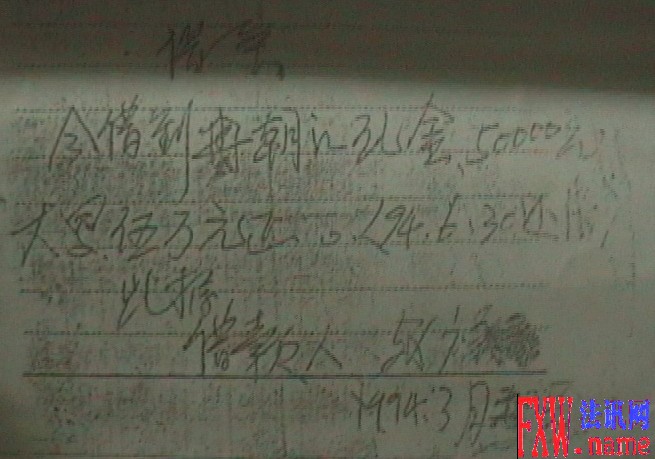 借条
今借到冉朝江现金50000元
大写伍万元正。(94.6.30还清)
此据
借款人
1994.3月
FXW 法讯网
.name